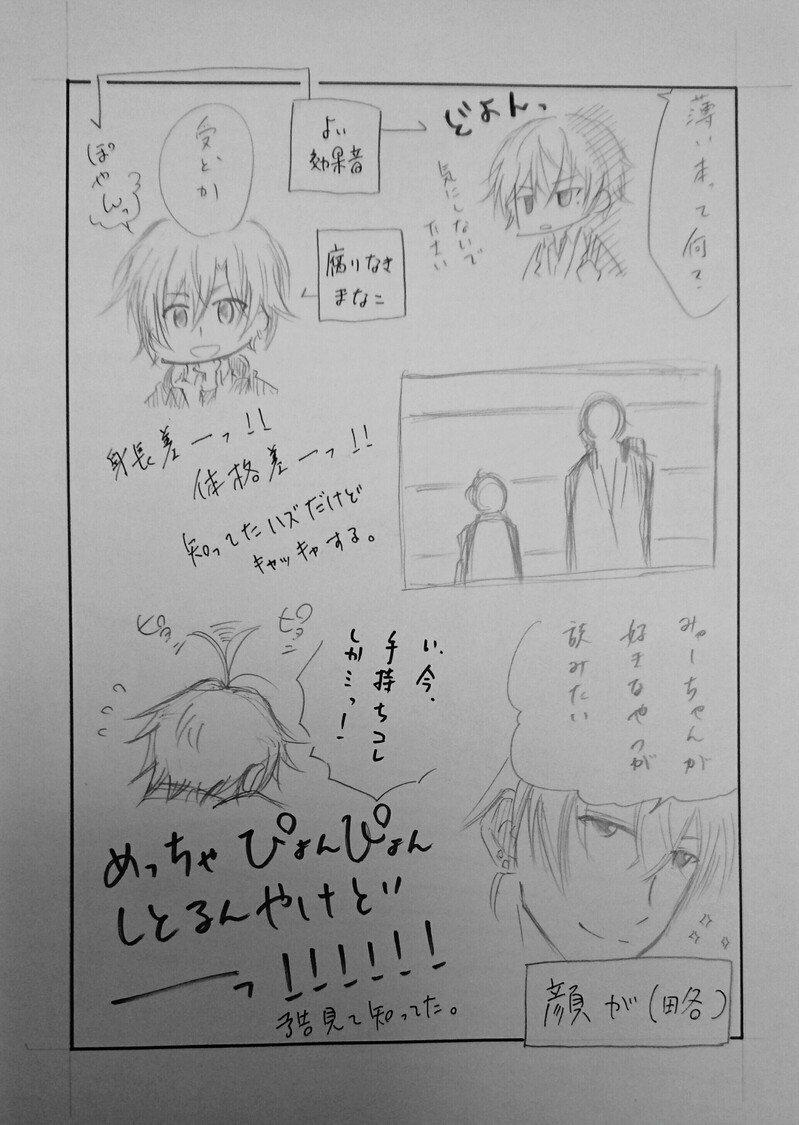 薄い本って何？
どよんっ
気にしないで
下さい
よい
効果音
受とか
ぽやんっ
腐りなき
まなこ
身長差ーっ!!
体格差ーっ!!
知ってたハズだけど
キャッキャする。
みゃーちゃんが
好きなやつが
読みたい
い、今、
手持ちコレ
しかミっ!
ピョン
ピョン
めっちゃぴょんぴょん
しとるんやけど
ーーっ!!!!!!
予告見て知ってた。
顔が(略)